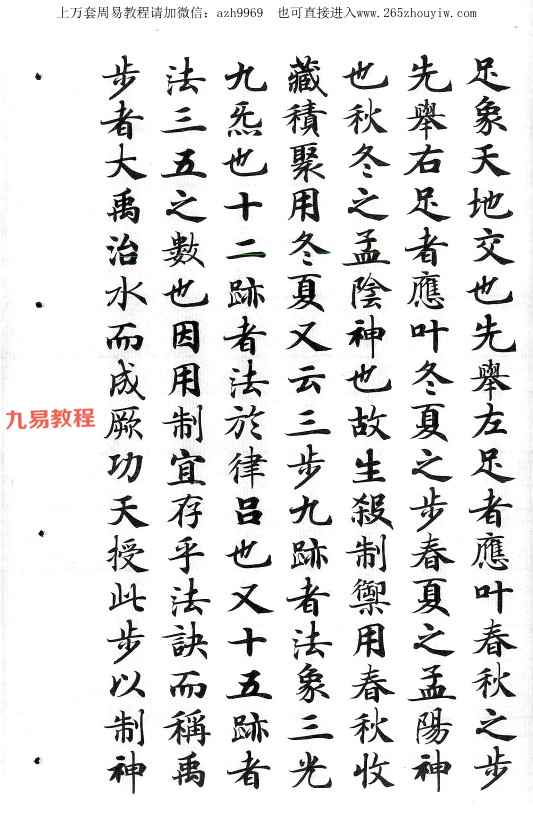 上万套周易教程请加微信：azh9969　也可直接进入www.265zhouyiw.com
足象天地交也先舉左足者應叶春秋之步
先舉右足者應叶冬夏之步春夏之孟陽神
也秋冬之孟陰神也故生殺制禦用春秋收
藏積聚用冬夏又云三步九跡者法象三光
九炁也十二跡者法於律呂也又十五跡者
法三五之數也因用制宜存乎法訣而稱禹
步者大禹治水而成厥功天授此步以制神
九易教程